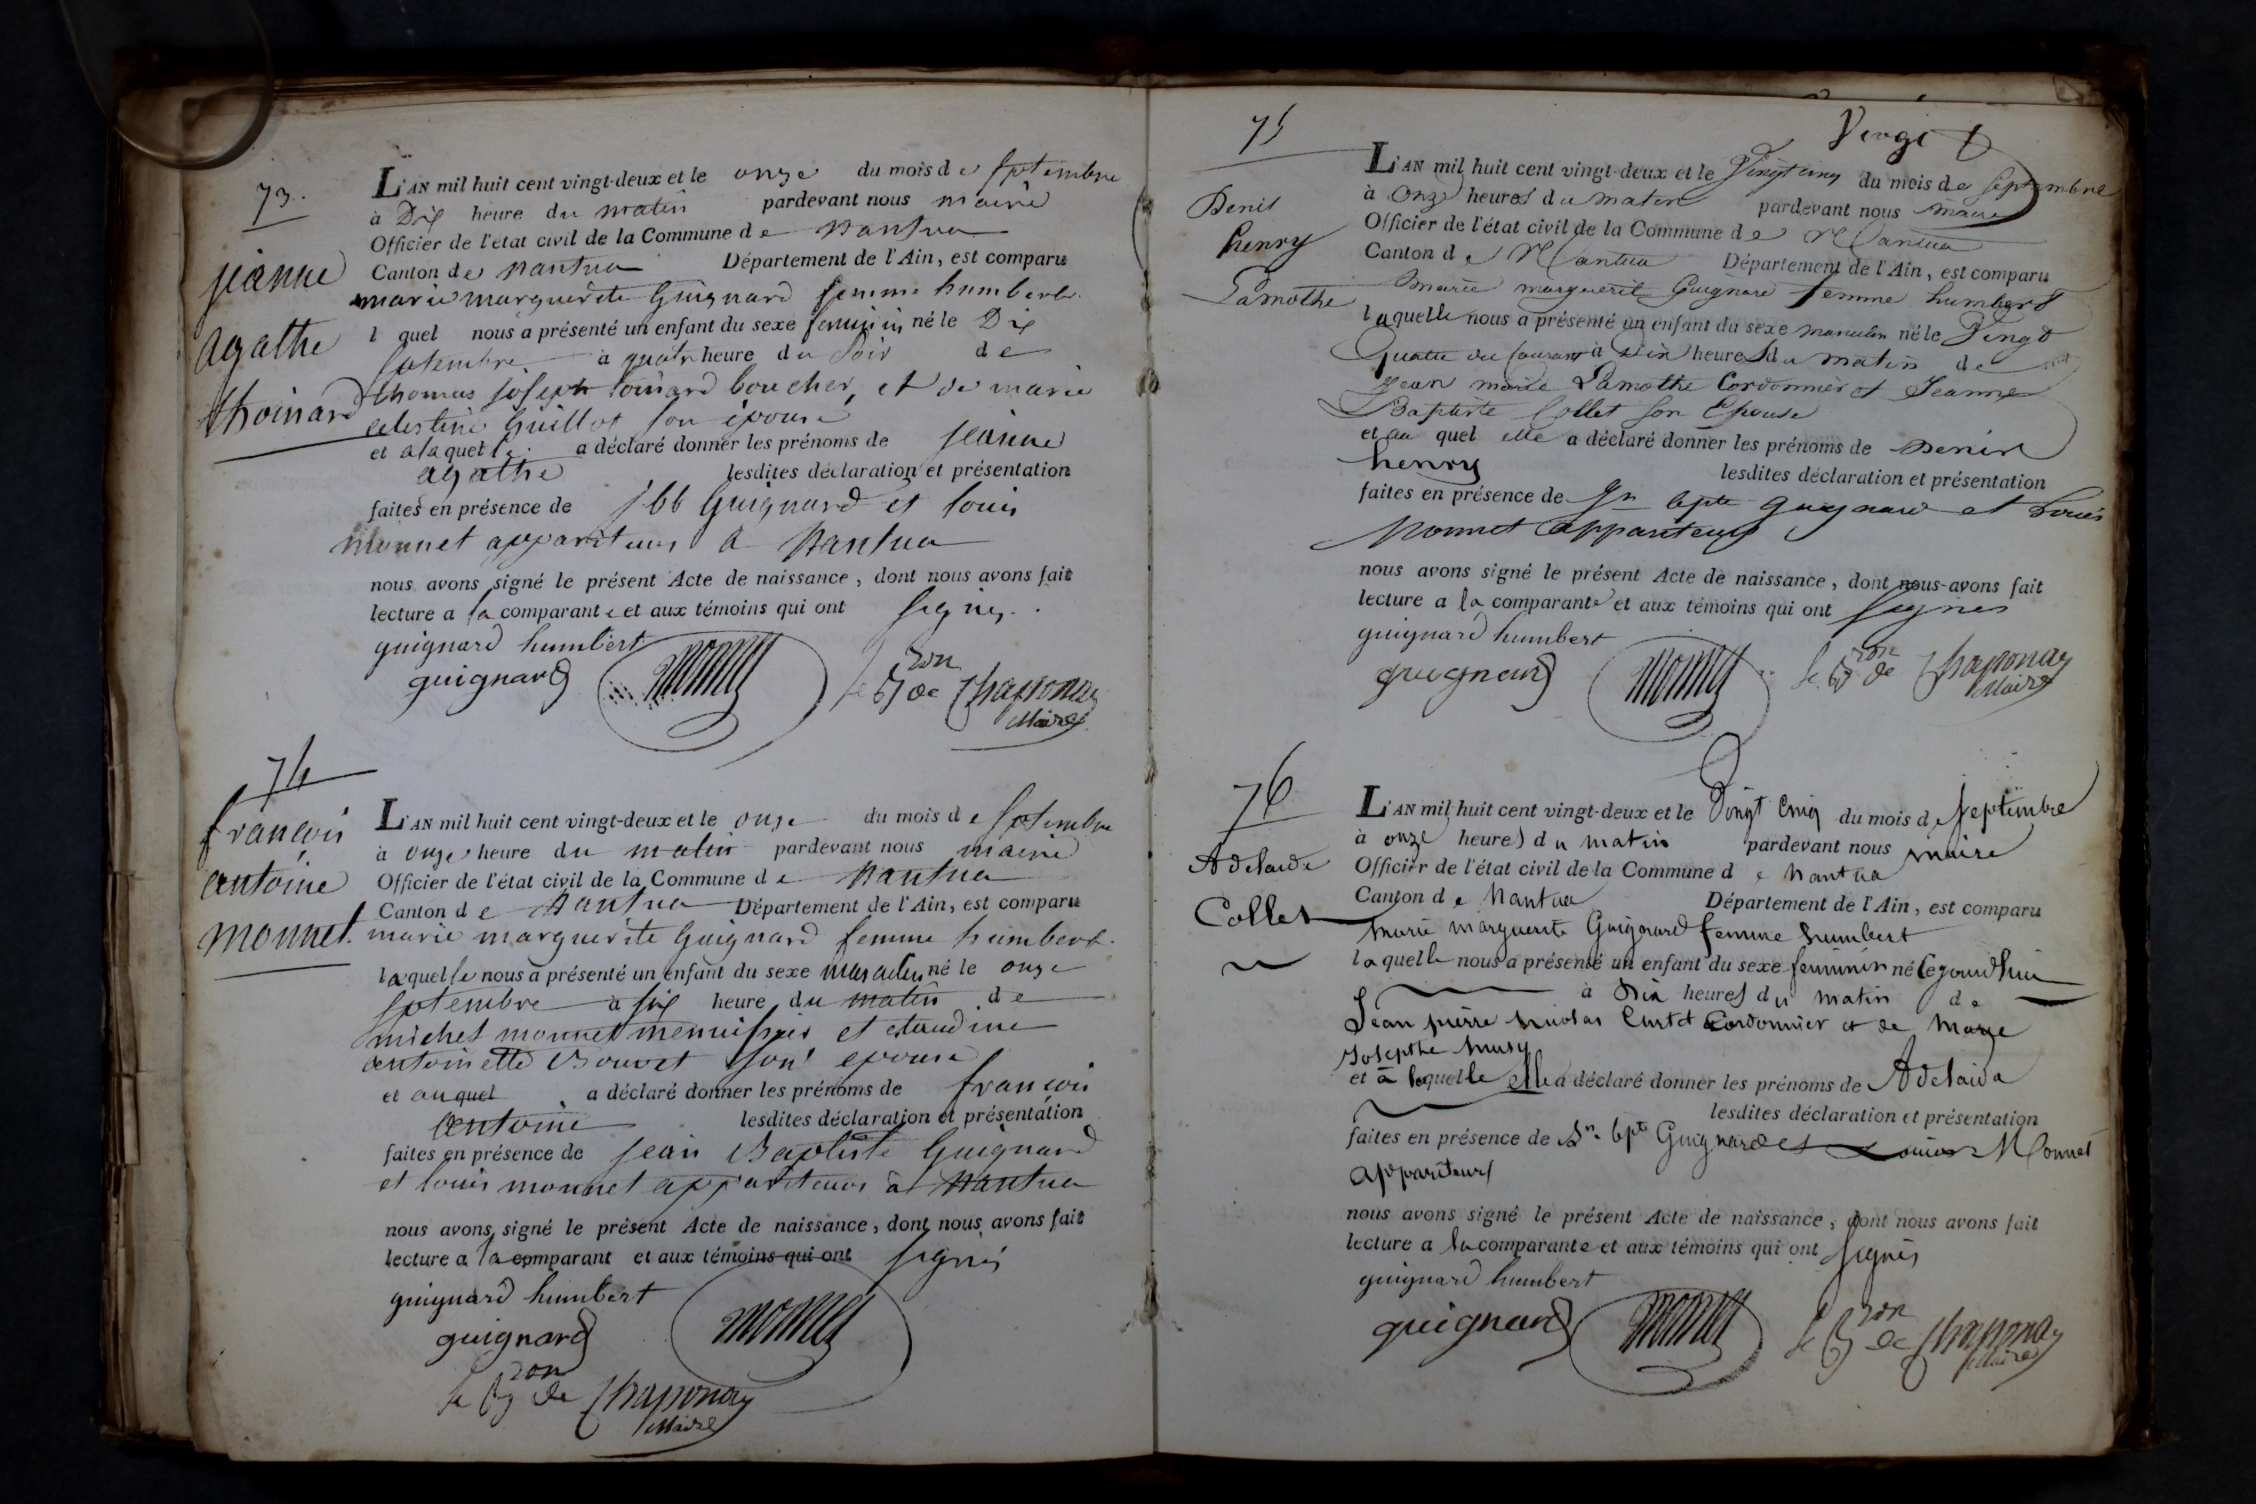 73.
jeanne
agathe
thoinard
L'AN mil huit cent vingt-deux et le onze du mois de septembre
à Dix heure du matin pardevant nous maire
Officier de l'état civil de la Commune de Nantua
Canton de Nantua Département de l'Ain, est comparu
marie marguerite Guignard femme humbert
l quel nous a présenté un enfant du sexe feminin né le Dix
septembre à quatre heure du Soir de
thomas joseph toinard boucher, et de marie
celestine Guillot son épouse
et a laquelle a déclaré donner les prénoms de jeanne
agathe lesdites déclaration et présentation
faites en présence de Guignard et louis
monnet appariteurs a Nantua
nous avons signé le présent Acte de naissance, dont nous avons fait
lecture a la comparante et aux témoins qui ont signés.
guignard humbert
guignard monnet le Bon de Chapponay
Maire
74
françois
antoine
monnet.
L'AN mil huit cent vingt-deux et le onze du mois de septembre
à onze heure du matin pardevant nous maire
Officier de l'état civil de la Commune de Nantua
Canton de Nantua Département de l'Ain, est comparu
marie marguerite Guignard femme humbert.
laquelle nous a présenté un enfant du sexe masculin né le onze
septembre à six heure du matin de
michel monnet menuisier et claudine
antoinette Bouvet son epouse
et auquel a déclaré donner les prénoms de françois
antoine lesdites déclaration et présentation
faites en présence de jean Baptiste Guignard
et louis monnet appariteurs à Nantua
nous avons signé le présent Acte de naissance, dont nous avons fait
lecture a la comparant et aux témoins qui ont signés
guignard humbert
guignard monnet
le Bon de Chapponay
Maire
Vingt
75
Denis
henry
Lamothe
L'AN mil huit cent vingt-deux et le Vingt cinq du mois de septembre
à onze heures du matin pardevant nous maire
Officier de l'état civil de la Commune de Nantua
Canton de Nantua Département de l'Ain, est comparu
marie marguerite Guignard femme humbert
laquelle nous a présenté un enfant du sexe masculin né le Vingt
Quatre du Courant à dix heures du matin de
jean marie Lamothe Cordonnier et Jeanne
Baptiste Collet son Epouse
et au quel elle a déclaré donner les prénoms de Denis
henry lesdites déclaration et présentation
faites en présence de Jn bpte guignard et Louis
Monnet appariteurs
nous avons signé le présent Acte de naissance, dont nous avons fait
lecture a la comparante et aux témoins qui ont signés
guignard humbert
guignard monnet le Bon de Chapponay
Maire
76
Adelaide
Collet
L'AN mil huit cent vingt-deux et le Vingt Cinq du mois de septembre
à onze heures du matin pardevant nous maire
Officier de l'état civil de la Commune de Nantua
Canton de Nantua Département de l'Ain, est comparu
marie marguerite Guignard femme humbert
laquelle nous a présenté un enfant du sexe feminin né Cejourdhui
à Dix heures du matin de
Jean pierre nicolas Cordonnier et de Marie
Josepthe musy
et à laquelle elle a déclaré donner les prénoms de Adelaida
lesdites déclaration et présentation
faites en présence de Jn bpte Guignard et Louis Monnet
appariteurs
nous avons signé le présent Acte de naissance, dont nous avons fait
lecture a la comparante et aux témoins qui ont signés
guignard humbert
guignard monnet le Bon de Chapponay
Maire